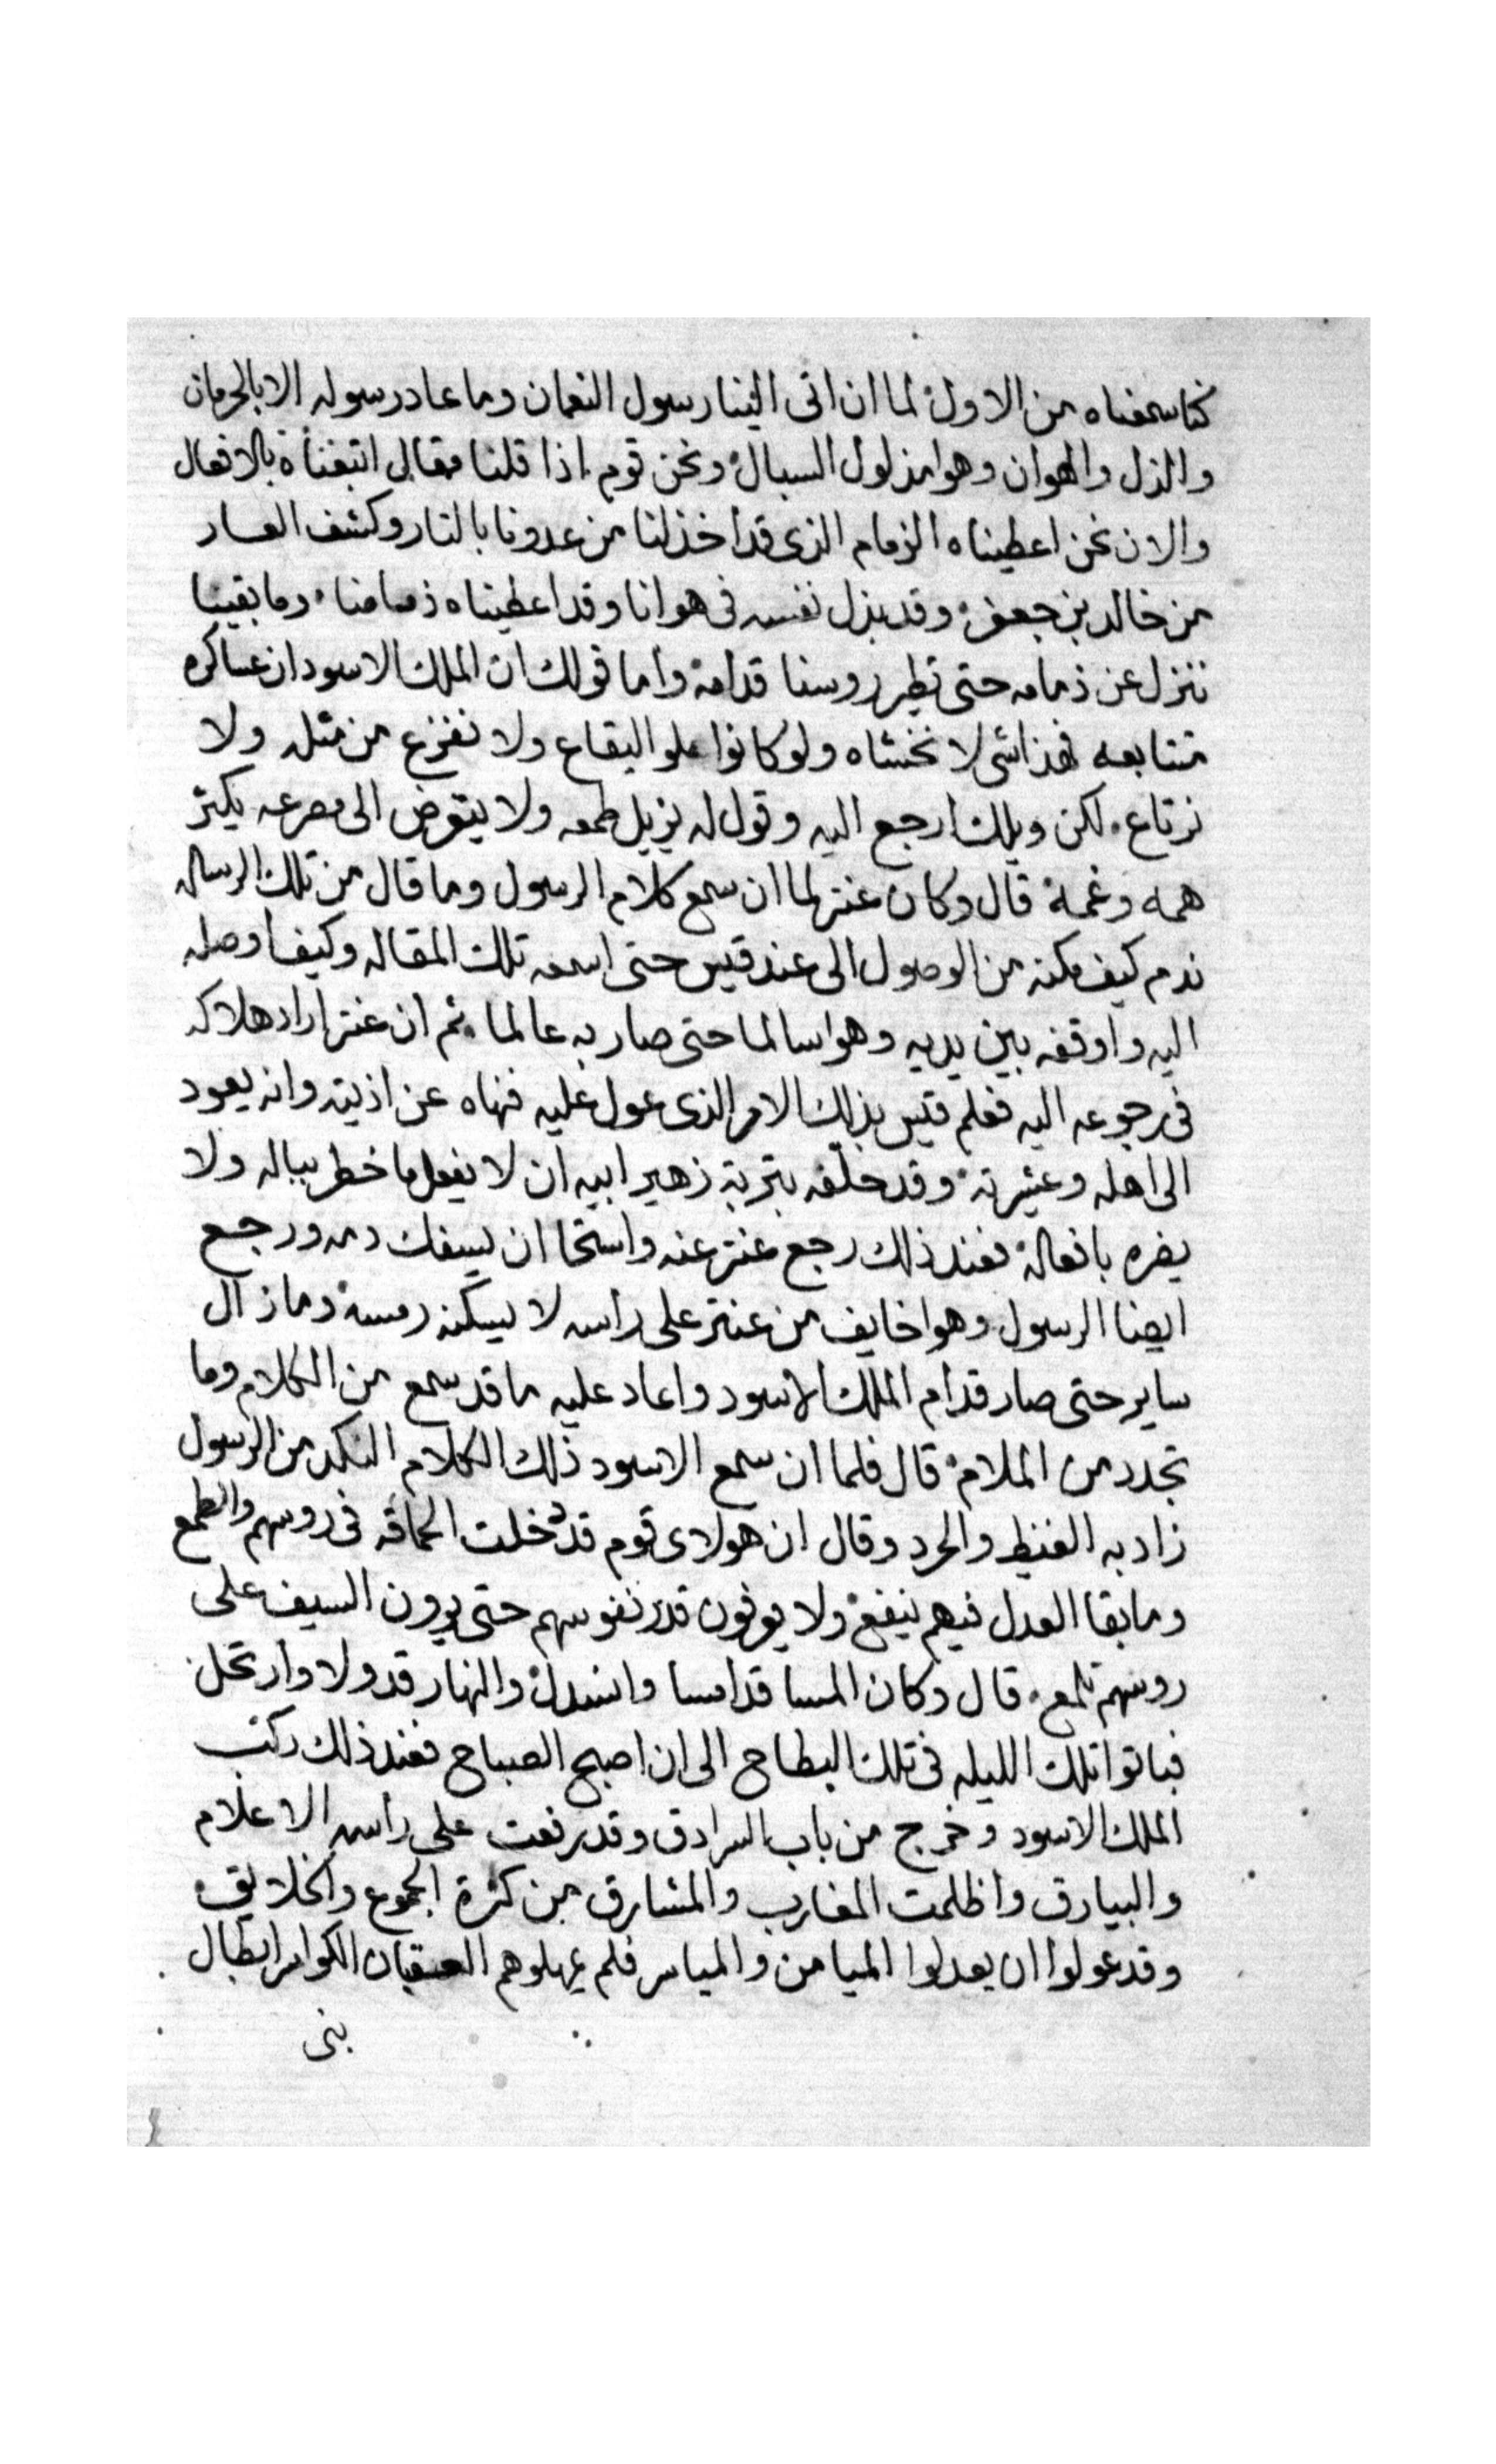 كنا سمعناه من الاول لما ان اتى الينا رسول النعمان وما عاد رسوله الا بالحرمان
والذل والهوان وهوا مذلول السبال ونحن قوم اذا قلنا مقال اتبعناه بالافعال
والان نحن اعطيناه الزمام الذى قد اخذ لنا من عدونا بالتار وكشف العار
من خالد بن جعفر وقد بذل نفسه فى هوانا وقد اعطيناه ذمامنا وما بقينا
ننزل عن ذمامه حتى تطير روسنا قدامه واما قولك ان الملك الاسود ان عساكره
متتابعه فهذا شى لا نخشاه ولو كانوا ملو البقاع ولا نفزع من مثله ولا
نرتاع لكن ويلك ارجع اليه وقول له يزيل طمعه ولا يتعرض الى مصرعه يكثر
همه وغمه قال وكان عنتر لما ان سمع كلام الرسول وما قال من تلك الرساله
ندم كيف مكنه من الوصول الى عند قيس حتى اسمعه تلك المقاله وكيف اوصله
اليه واوقفه بين يديه وهوا سالما حتى صار به عالما ثم ان عنتر اراد هلاكه
فى رجوعه اليه فعلم قيس بذلك الامر الذى عول عليه فنهاه عن اذيته وانه يعود
الى اهله وعشيرته وقد حلفه بتربة زهير ابيه ان لا يفعل ما خطر بباله ولا
يضره بافعاله فعند ذلك رجع عنتر عنه واستحا ان يسفك دمه ورجع
ايضا الرسول وهوا خايف من عنتر على راسه لا يسكنه رمسه وما زال
ساير حتى صار قدام الملك الاسود واعاد عليه ما قد سمع من الكلام وما
تجدد من الملام قال فلما ان سمع الاسود ذلك الكلام النكد من الرسول
زاد به الغيظ والحرد وقال ان هولاى قوم قد دخلت الحماقه فى روسهم والطمع
وما بقا العدل فيهم ينفع ولا يعرفون قدر نفوسهم حتى يرون السيف على
روسهم تلمع قال وكان المسا قد امسا وانسدل والنهار قد ولا وارتحل
فباتوا تلك الليله فى تلك البطاح الى ان اصبح الصباح فعند ذلك ركب
الملك الاسود وخرج من باب السرادق وقد رفعت على راسه الاعلام
والبيارق واظلمت المغارب والمشارق من كثرة الجموع والخلايق
وقد عولوا ان يعدلوا الميامن والمياسر فلم يمهلوهم العقبان الكواسر ابطال
بنى